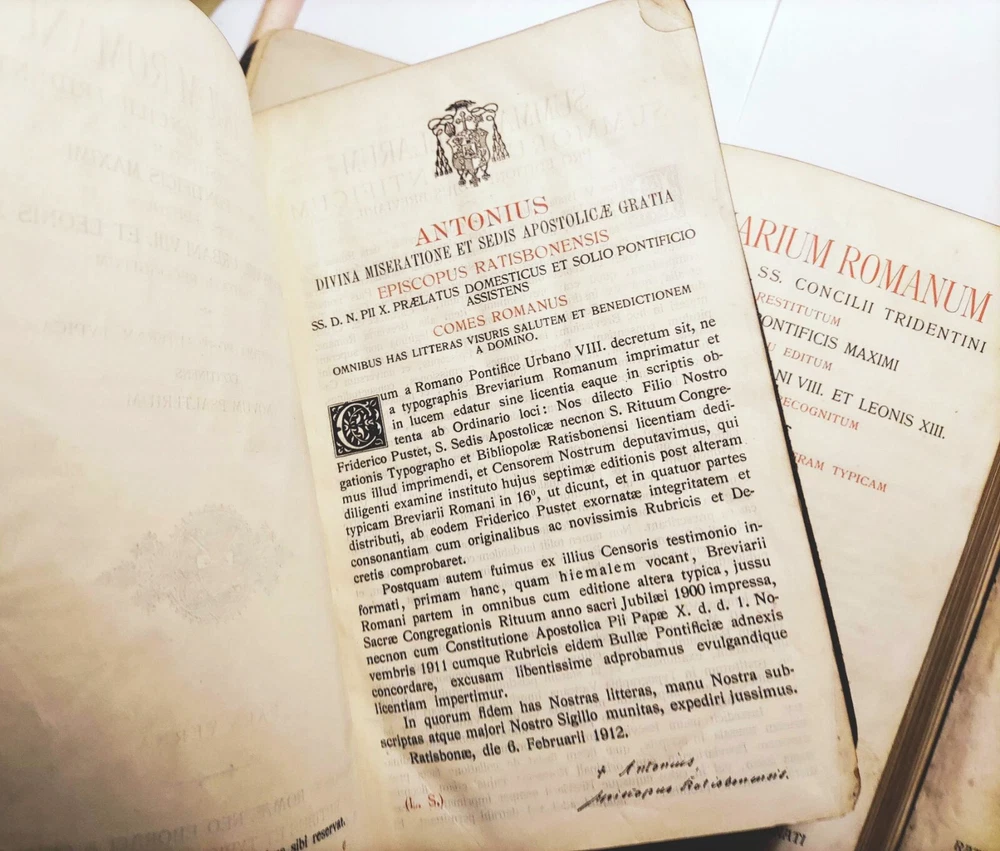 ANTONIUS
DIVINA MISERATIONE ET SEDIS APOSTOLICÆ GRATIA
EPISCOPUS RATISBONENSIS
SS. D. N. PII X. PRÆLATUS DOMESTICUS ET SOLIO PONTIFICIO
ASSISTENS
COMES ROMANUS
OMNIBUS HAS LITTERAS VISURIS SALUTEM ET BENEDICTIONEM
A DOMINO.
Cum a Romano Pontifice Urbano VIII. decretum sit, ne
a typographis Breviarium Romanum imprimatur et
in lucem edatur sine licentia eaque in scriptis ob-
tenta ab Ordinario loci: Nos dilecto Filio Nostro
Friderico Pustet, S. Sedis Apostolicæ necnon S. Rituum Congre-
gationis Typographo et Bibliopolæ Ratisbonensi licentiam dedi-
mus illud imprimendi, et Censorem Nostrum deputavimus, qui
diligenti examine instituto hujus septimæ editionis post alteram
typicam Breviarii Romani in 16⁰, ut dicunt, et in quatuor partes
distributi, ab eodem Friderico Pustet exornatæ integritatem et
consonantiam cum originalibus ac novissimis Rubricis et De-
cretis comprobaret.
Postquam autem fuimus ex illius Censoris testimonio in-
formati, primam hanc, quam hiemalem vocant, Breviarii
Romani partem in omnibus cum editione altera typica, jussu
Sacræ Congregationis Rituum anno sacri Jubilæi 1900 impressa,
necnon cum Constitutione Apostolica Pii Papæ X. d. d. 1. No-
vembris 1911 cumque Rubricis eidem Bullæ Pontificiæ adnexis
concordare, excusam libentissime adprobamus evulgandique
licentiam impertimur.
In quorum fidem has Nostras litteras, manu Nostra sub-
scriptas atque majori Nostro Sigillo munitas, expediri jussimus.
Ratisbonæ, die 6. Februarii 1912.
+ Antonius,
Episcopus Ratisbonensis.
(L. S.)
sibi reservat.
ARIUM ROMANUM
SS. CONCILII TRIDENTINI
RESTITUTUM
PONTIFICIS MAXIMI
U EDITUM
NI VIII. ET LEONIS XIII.
RECOGNITUM
ERAM TYPICAM